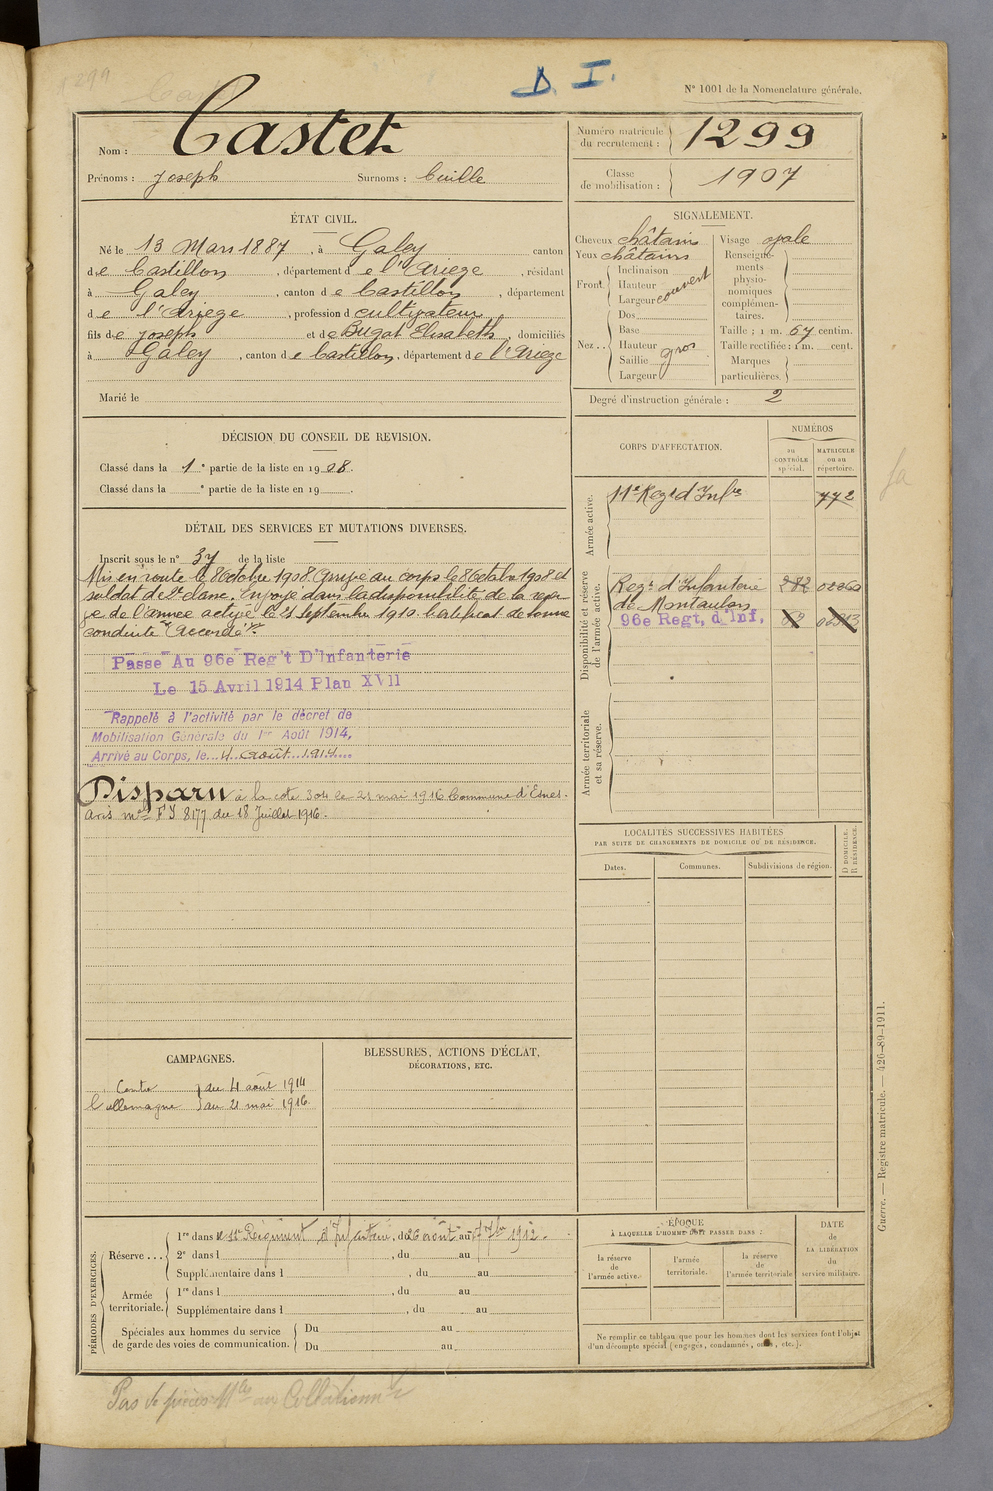 1299
D. I.
N° 1001 de la Nomenclature générale.
Nom : Castet
Prénoms : Joseph Surnoms : Cuille
Numéro matricule du recrutement : 1299
Classe de mobilisation : 1907
ÉTAT CIVIL.
Né le 13 Mars 1887, à Galey canton
de Castillon, département de l'Ariège, résidant
à Galey, canton de Castillon, département
de l'Ariège, profession d cultivateur
fils de Joseph et de Bugat Elisabeth, domiciliés
à Galey, canton de Castillon, département de l'Ariège
Marié le
SIGNALEMENT.
Cheveux châtains
Yeux châtains
Front. Inclinaison
Hauteur
Largeur couvert
Nez.. Dos
Base
Hauteur gros
Saillie
Largeur
Visage ovale
Renseignements physionomiques complémentaires.
Taille : 1 m. 67 centim.
Taille rectifiée : 1 m. cent.
Marques particulières.
Degré d'instruction générale : 2
DÉCISION DU CONSEIL DE REVISION.
Classé dans la 1e partie de la liste en 1908.
Classé dans la e partie de la liste en 19 .
DÉTAIL DES SERVICES ET MUTATIONS DIVERSES.
Inscrit sous le n° 37 de la liste
Mis en route le 8 Octobre 1908. Arrivé au corps le 8 Octobre 1908 et
soldat de 2e classe. Envoyé dans la disponibilité de la réser-
ve de l'armée active le 25 septembre 1910. Certificat de bonne
conduite "Accordé".
Passé Au 96e Reg't D'Infanterie
Le 15 Avril 1914 Plan XVII
Rappelé à l'activité par le décret de
Mobilisation Générale du 1er Août 1914,
Arrivé au Corps, le 4 août 1914
Disparu à la cote 304 le 21 mai 1916 Commune d'Esnes.
avis mel FY 8177 du 18 Juillet 1916.
CORPS D'AFFECTATION.
NUMÉROS
au CONTRÔLE spécial.
MATRICULE ou au répertoire.
Armée active.
11e Regt d'Infie 772
Disponibilité et réserve de l'armée active.
Regt d'Infanterie 282
de Montauban
96e Regt, d'Inf.
Armée territoriale et sa réserve.
LOCALITÉS SUCCESSIVES HABITÉES
PAR SUITE DE CHANGEMENTS DE DOMICILE OU DE RÉSIDENCE.
Dates. Communes. Subdivisions de région. D DOMICILE. R RÉSIDENCE.
CAMPAGNES.
Contre du 4 août 1914
l'allemagne au 21 mai 1916.
BLESSURES, ACTIONS D'ÉCLAT,
DÉCORATIONS, ETC.
PÉRIODES D'EXERCICES.
Réserve ... 1re dans le 11e Régiment d'Infanterie, du 26 août au 17 7bre 1912.
2e dans l , du au
Supplémentaire dans l , du au
Armée territoriale. 1re dans l , du au
Supplémentaire dans l , du au
Spéciales aux hommes du service de garde des voies de communication. Du au
Du au
ÉPOQUE
À LAQUELLE L'HOMME DOIT PASSER DANS :
la réserve de l'armée active.
l'armée territoriale.
la réserve de l'armée territoriale
DATE DE LA LIBÉRATION du service militaire.
Ne remplir ce tableau que pour les hommes dont les services font l'objet
d'un décompte spécial (engagés, condamnés, omis, etc.).
Guerre. — Registre matricule. — 426-89-1911.
Pas de pièces Mles aux Collationnés